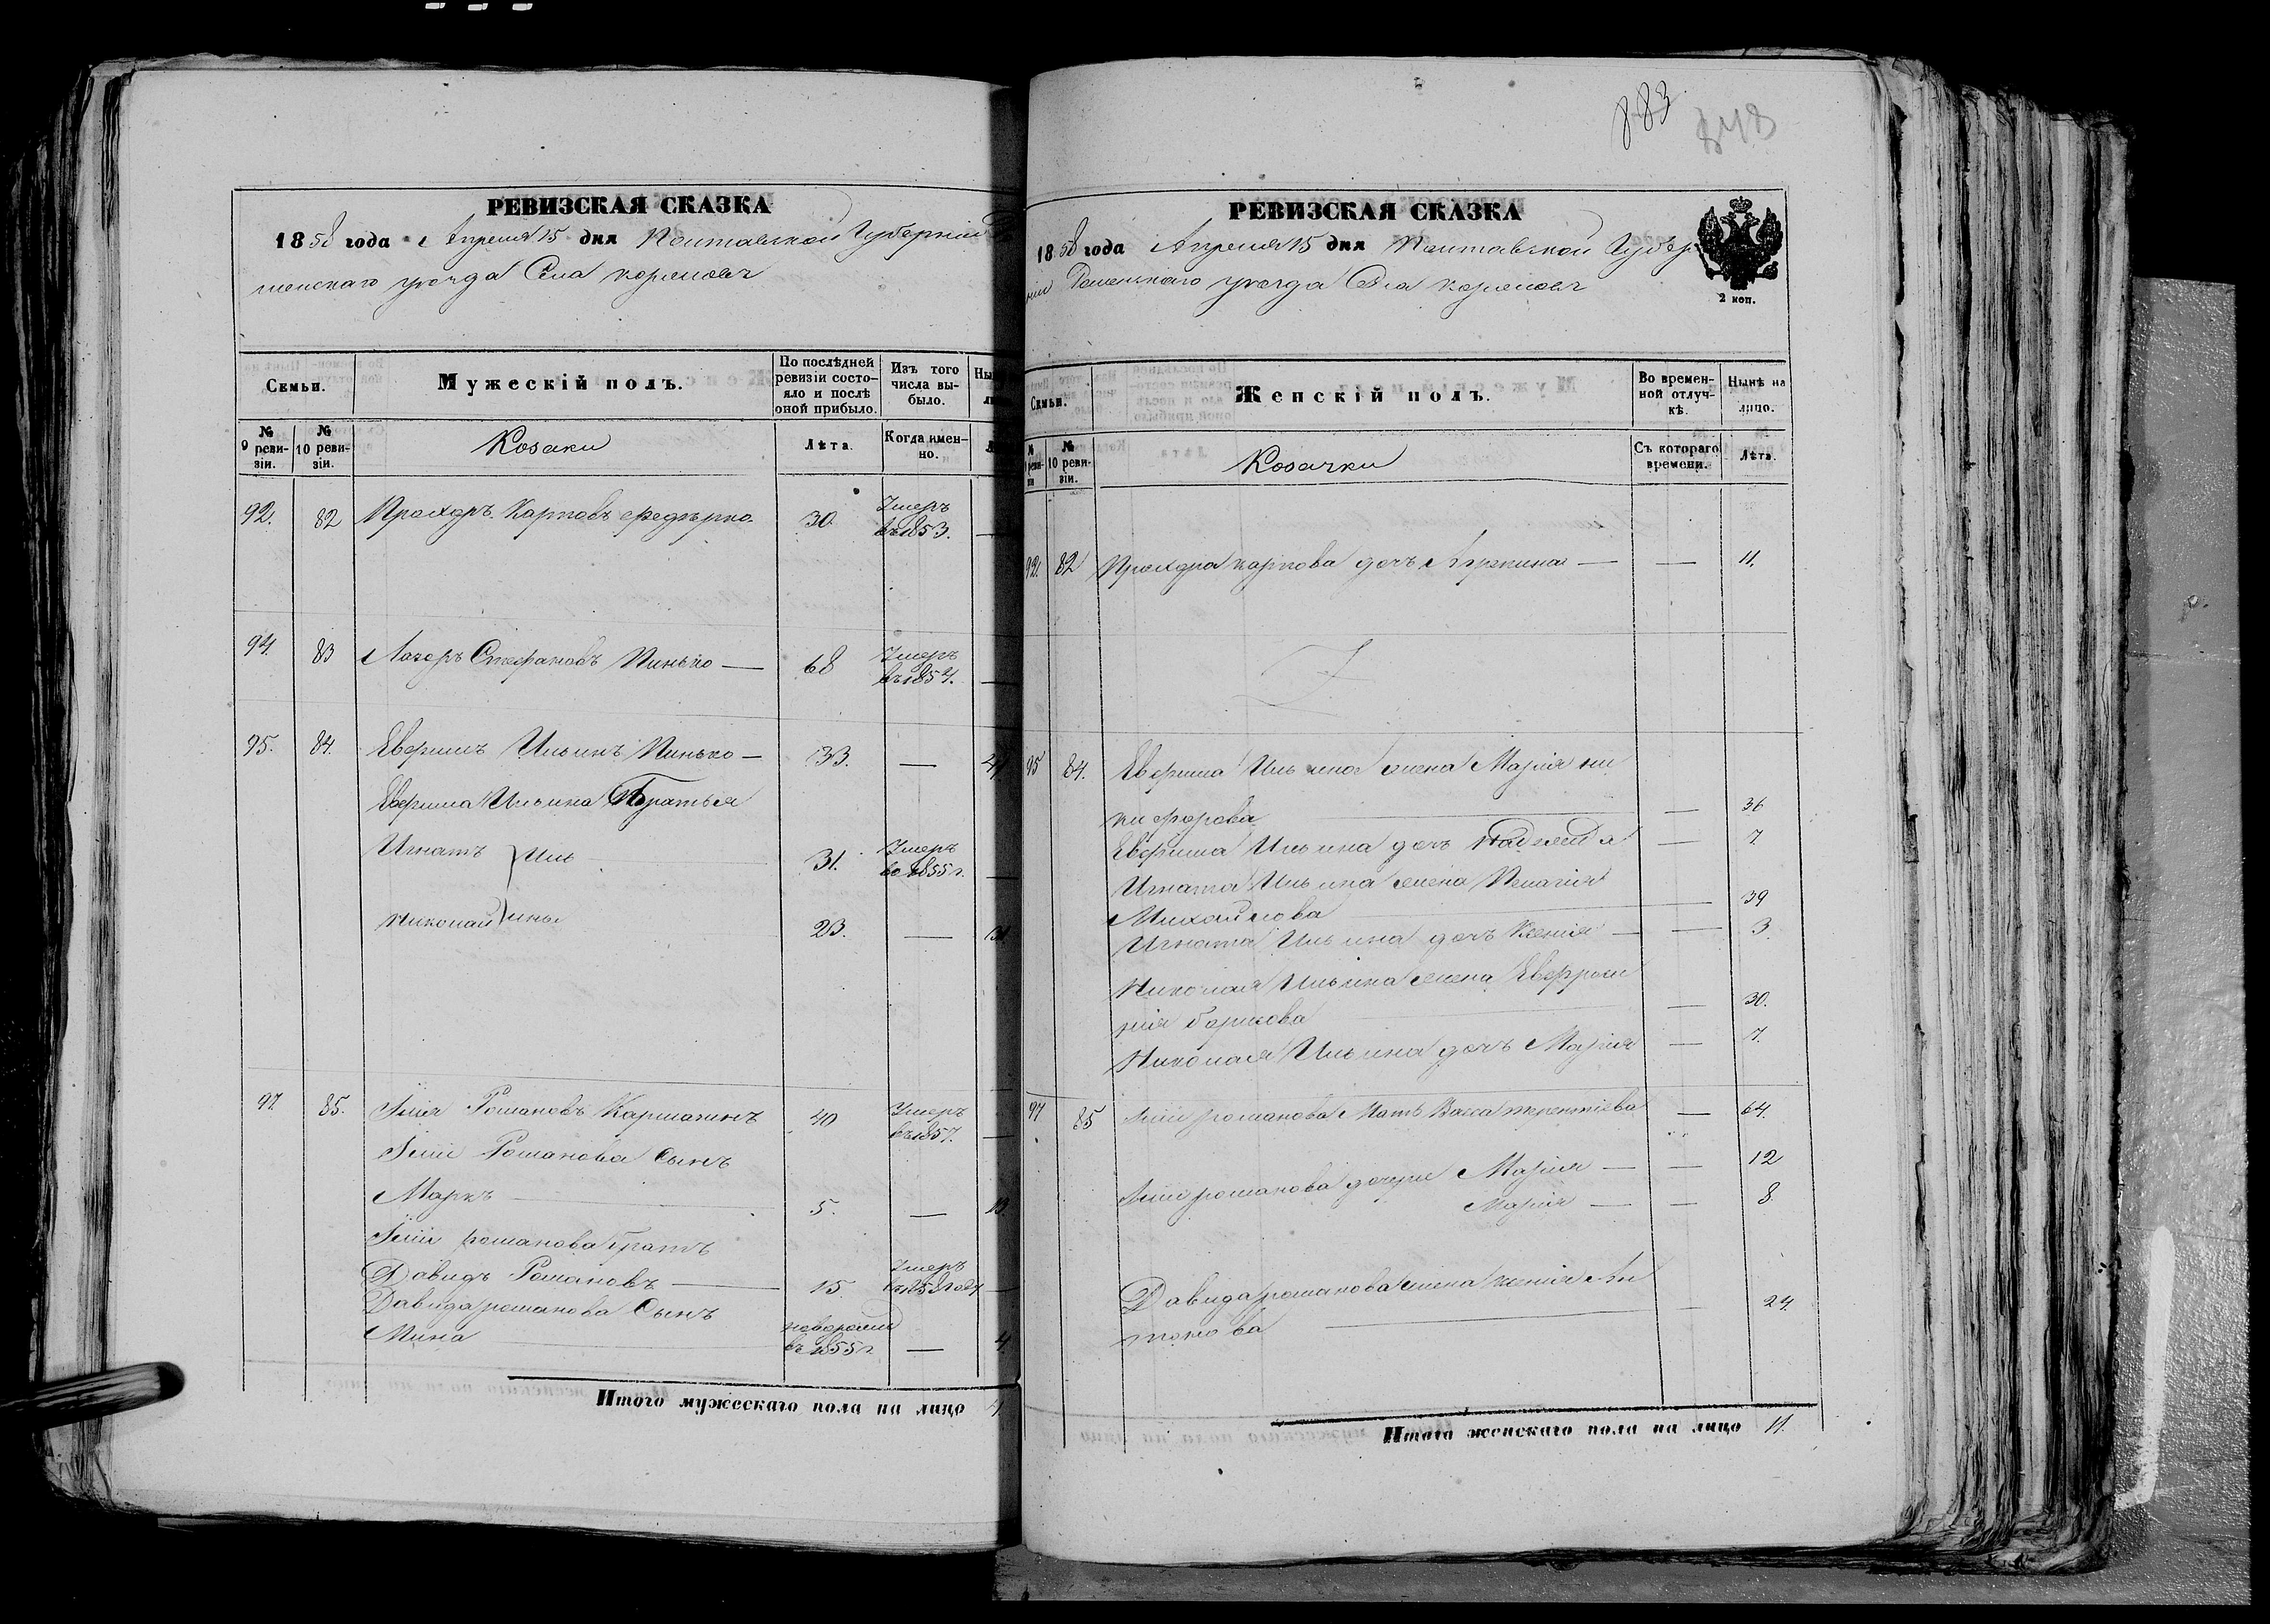 883
РЕВИЗСКАЯ СКАЗКА
1858 года Апреля 15 дня Полтавской Губерніи
менскаго уезда Села
Семьи.
Мужескій полъ.
По послѣдней ревизіи состояло и послѣ оной прибыло.
Изъ того числа выбыло.
№ 9 ревизіи.
№ 10 ревизіи.
Козаки
Лѣта.
Когда именно.
92. 82 Прохоръ Карповъ 30 Умеръ въ 1853. —
94. 83 Лазоръ Стефановъ Пинько — 68 Умеръ въ 1854. —
95. 84. Евфимъ Ильинъ Пинько — 33. —
Евфима Ильина Братья
Игнатъ } Иль 31. Умеръ во 1855 г. —
Николай } ины 23. —
97. 85. Романовъ 40 Умеръ въ 1857. —
Романова Сынъ
Маркъ 5. —
романова братъ
Давидъ Романовъ — 15. Умеръ —
Давида романова Сынъ
Мина въ 1855 г. — 4.
Итого мужескаго пола на лицо
РЕВИЗСКАЯ СКАЗКА
1858 года Апреля 15 дня Полтавской Губер
ніи Роменскаго уезда Села
2 коп.
Семьи.
Женскій полъ.
Во временной отлучкѣ.
Нынѣ на лицо.
№ 10 ревизіи.
Козачки
Съ котораго времени.
Лѣта.
92. 82 Прохора карпова дочь — — 11.
95 84. Евфима Ильина жена Марія ни
кифорова — 36
Евфима Ильина дочь Надежда — 7
Игната Ильина жена Пелагія
Михайлова — 39
Игната Ильина дочь Ксенія — — 3.
Николая Ильина жена Евфроси
нія борисова — 30.
Николая Ильина дочь Марія — 7.
97 85 романова Мать Васса терентіева — 64.
романова дочери Марія — — 12
Марія — — 8.
Давида романова жена ксенія Ан
тонова — 24.
Итого женскаго пола на лицо 11.